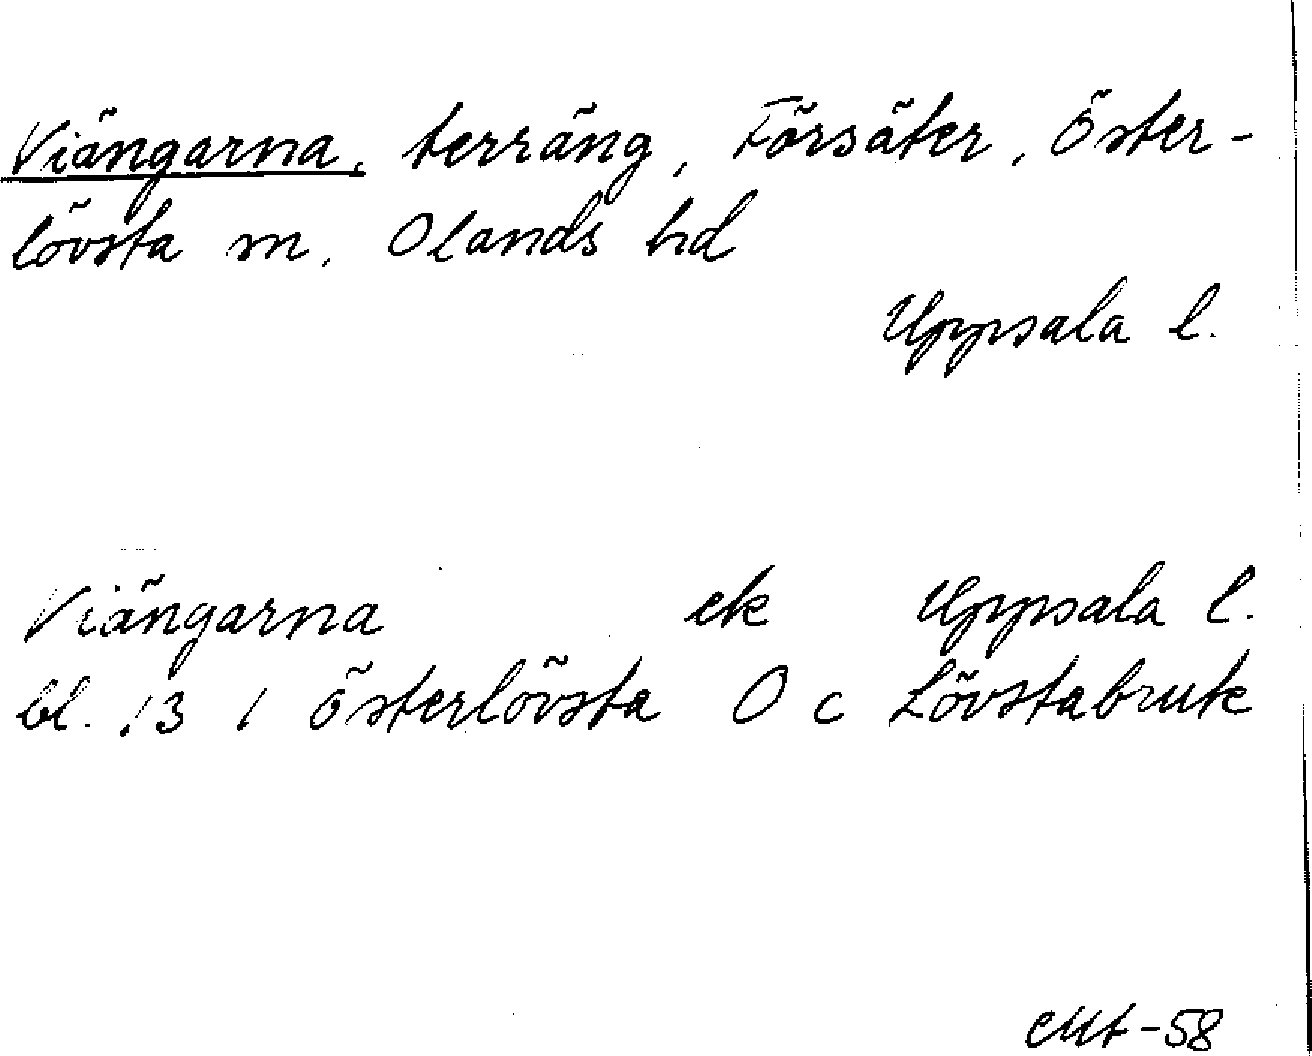 Viängarna, terräng, Försäter, Öster-
lövsta sn, Olands hd
Uppsala l.
Viängarna ek Uppsala l.
bl. 13 I Österlövsta O c Lövstabruk
-58